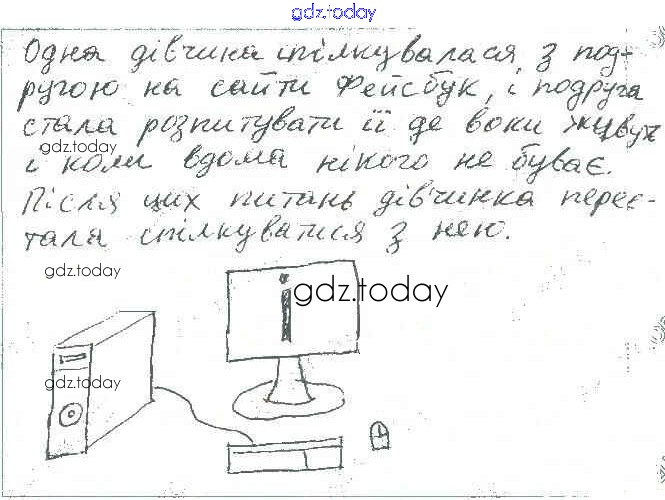 gdz.today
Одна дівчина спілкувалася з под-
ругою на сайти Фейсбук, і подруга
стала розпитувати її де вони живуть
gdz.today
і коли вдома нікого не буває.
Після цих питань дівчинка перес-
тала спілкуватися з нею.
gdz.today
i
gdz.today
gdz.today